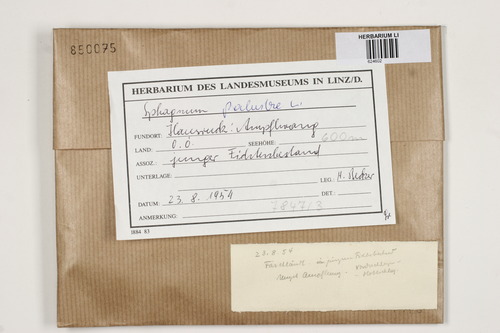 850075
HERBARIUM LI
624602
HERBARIUM DES LANDESMUSEUMS IN LINZ/D.
Sphagnum palustre L.
FUNDORT: Hausruck: Ampflwang
LAND: O.Ö. SEEHÖHE: 600m
ASSOZ.: junger Fichtenbestand
UNTERLAGE:
LEG.: H.
DATUM: 23.8.1954 DET.:
ANMERKUNG: 7847/3
3884 83
23.8.54
in jungem Fichtenbestand
Ampflwang